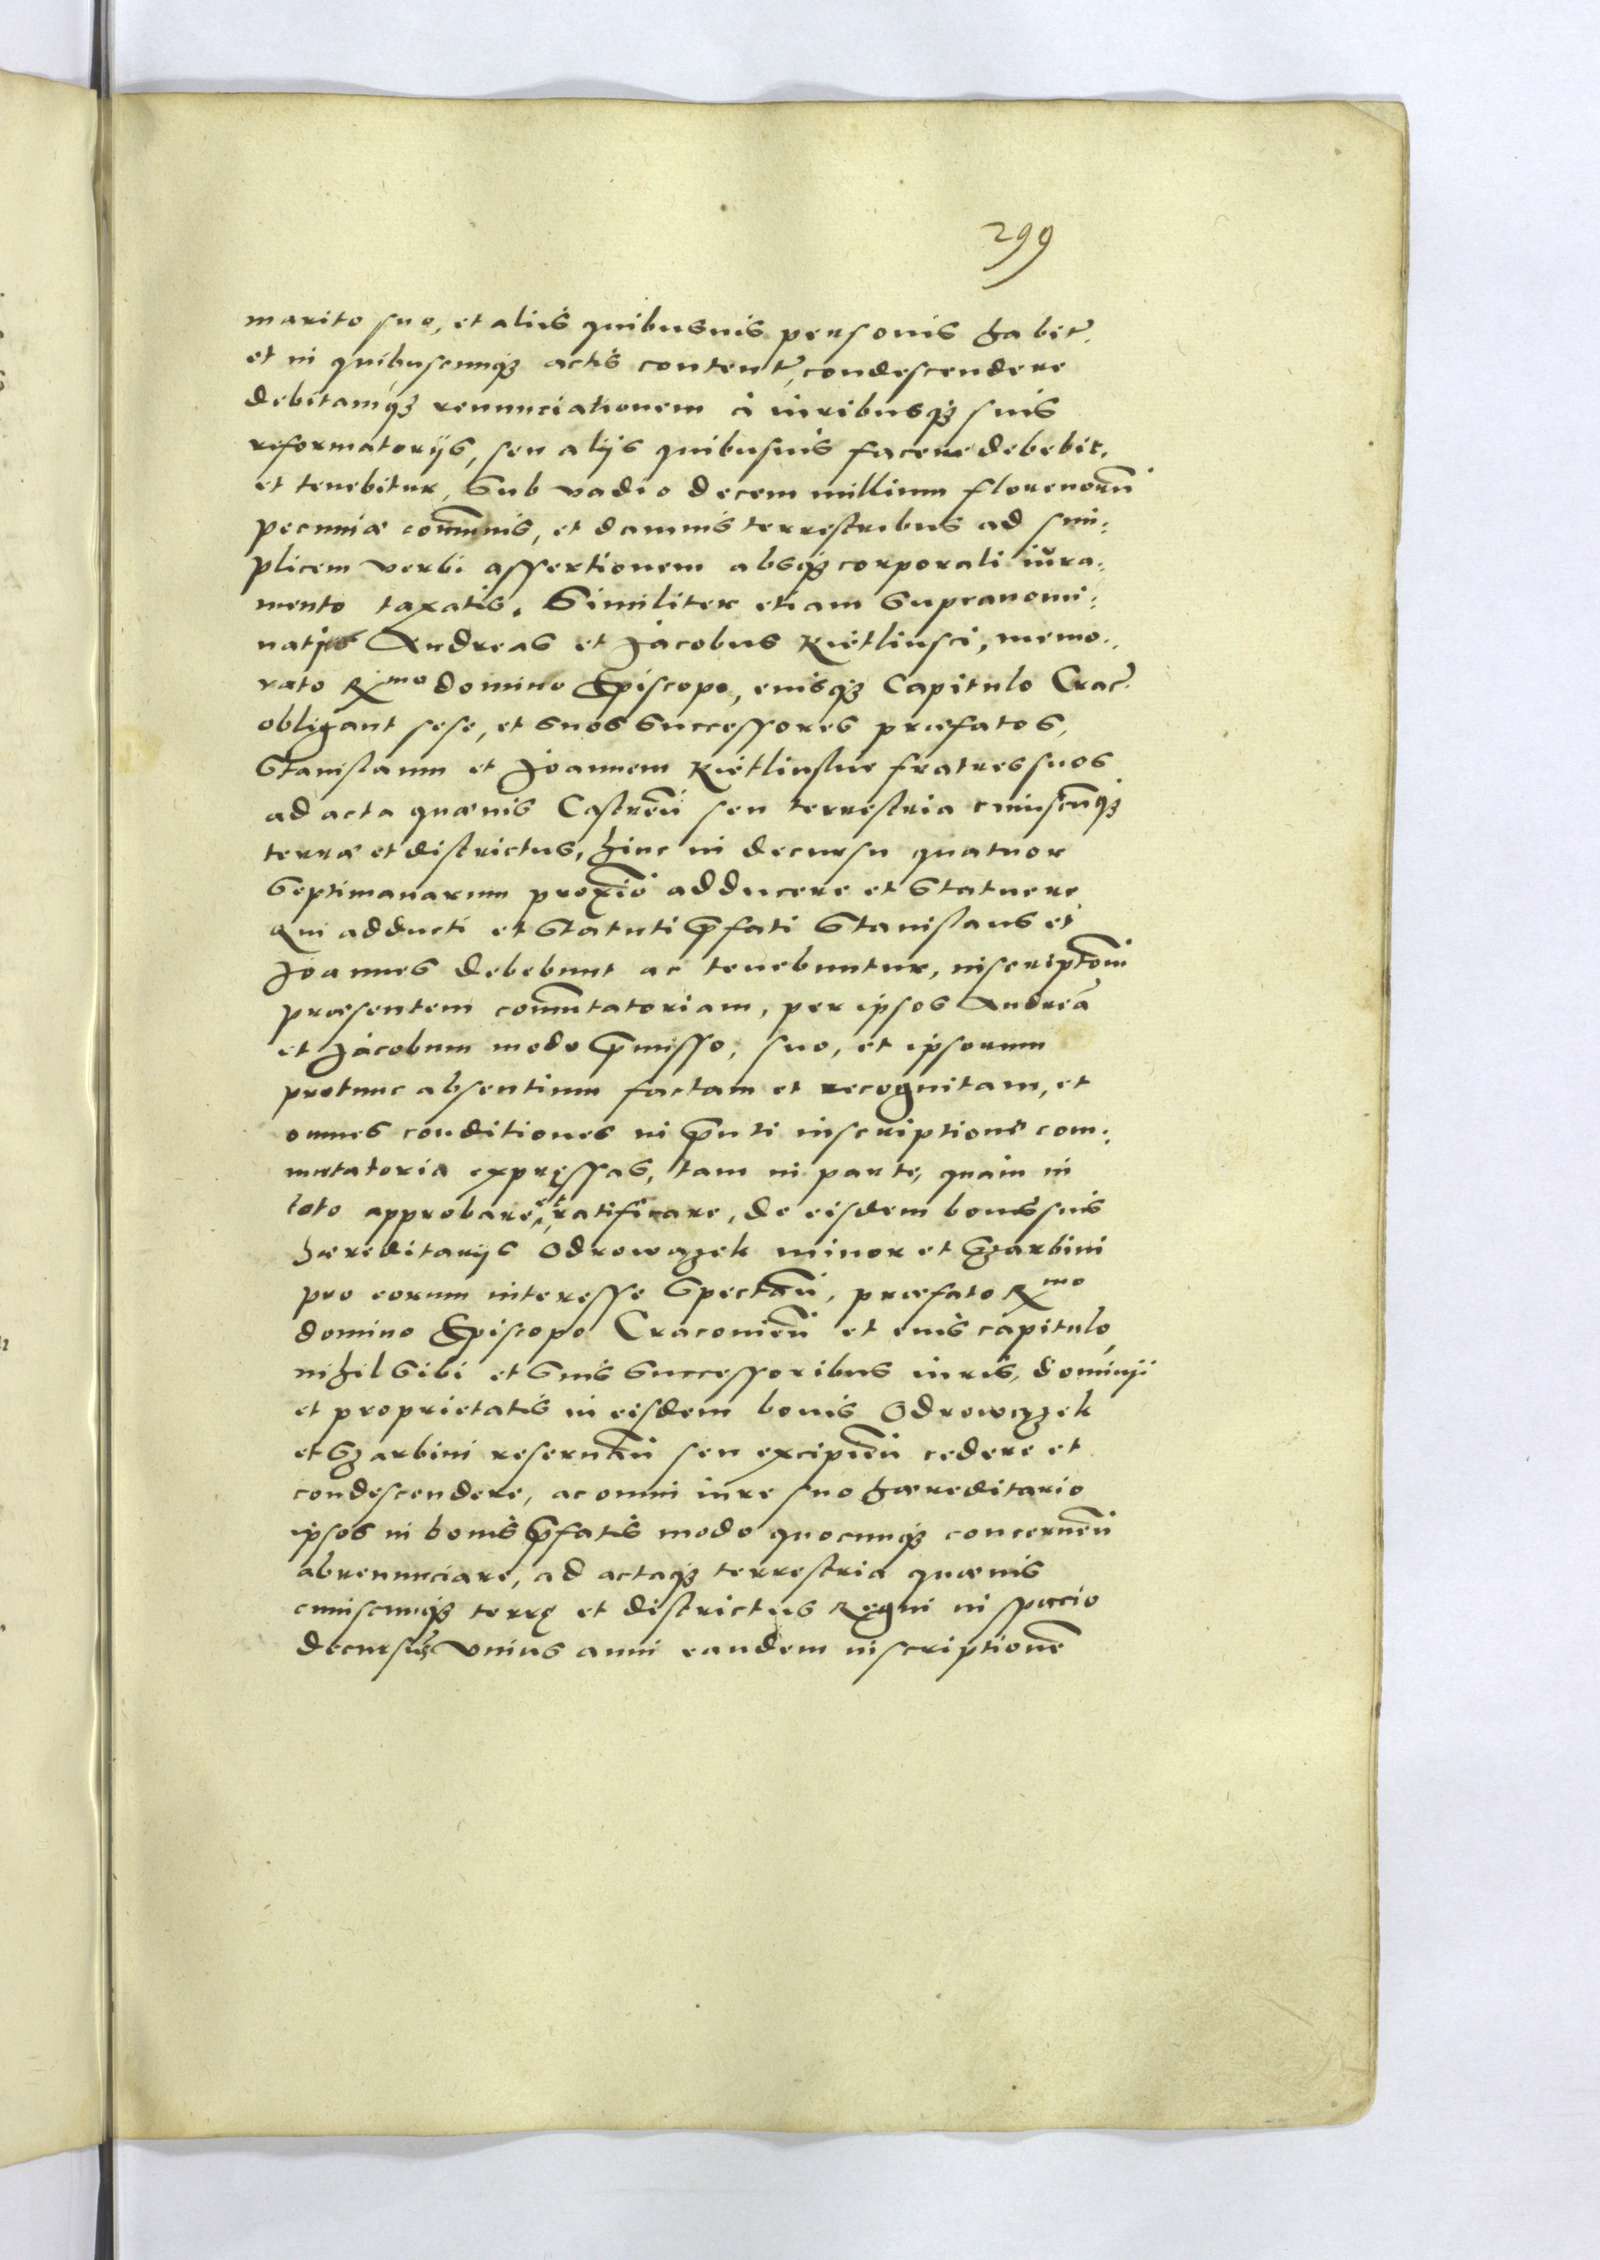 299
marito suo, et aliis quibusuis personis habit̃.
et in quibuscunqȝ actis content̃, condescendere
debitamqȝ renunciationem à iuribusqȝ suis
reformatorijs, seu alijs quibusuis facere debebit.
et tenebitur, sub vadio decem millium florenorũ
pecuniæ com̃unis, et damnis terrestribus ad sim:
plicem verbi assertionem absqȝ corporali iura:
mento taxatis. Similiter etiam supranomi:
natj Andreas et Jacobus Kietlinsci, memo:
rato Rmo domino Episcopo, eiusqȝ Capitulo Crac̃.
obligant sese, et suos successores præfatos,
Stanislaum et Joannem Kietlinskie fratres suos
ad acta quæuis Castreñ seu terrestria cuiuscũqȝ
terræ et districtus, hinc in decursu quatuor
septimanarum proxĩo adducere et statuere
Qui adducti et statuti p̃fati Stanislaus et
Joannes debebunt ac tenebuntur, inscriptõm
præsentem com̃utatoriam, per ipsos Andreã
et Jacobum modo p̃misso, suo, et ipsorum
protunc absentium factam et recognitam, et
omnes conditiones in p̃nti inscriptione com:
mutatoria expressas, tam in parte, quam in
toto approbare et ratificare, de eisdem bonis suis
hæreditarijs Odrowązek minor et Gzarbini
pro eorum interesse spectañ, præfato Rmo
domino Episcopo Cracouieñ et eius capitulo,
nihil sibi et suis successoribus iuris, dominij
et proprietatis in eisdem bonis Odrowązek
et Gzarbini reseruañ seu excipieñ cedere et
condescendere, ac omni iure suo hæreditario
ipsos in bonis p̃fatis modo quocunqȝ concerneñ
abrenunciare, ad actaqȝ terrestria quæuis
cuiuscunqȝ terrę et districtus Regni in spacio
decursus vnius anni eandem inscriptionẽ